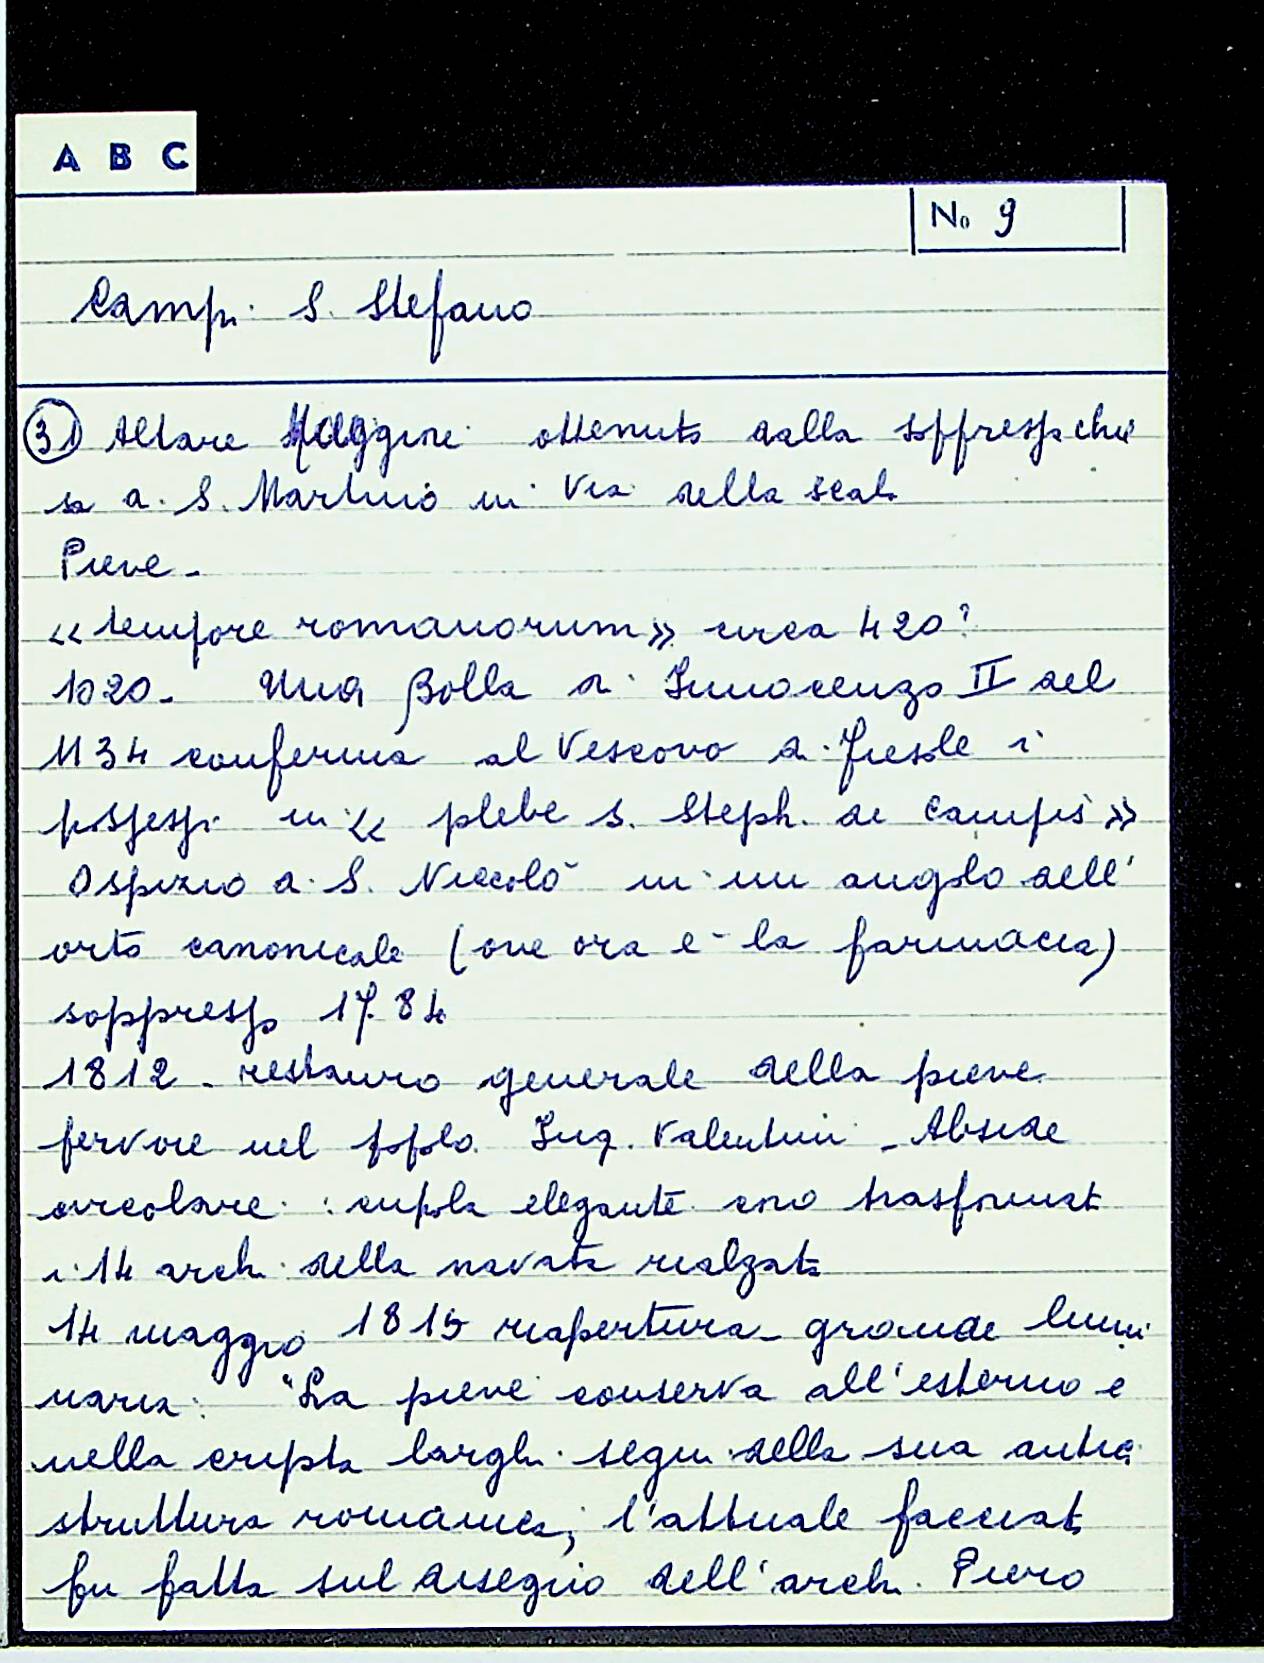 A B C
No 9
Campi S. Stefano
31) Altare Maggiore ottenuto dalla soppressa chie
sa di S. Martino in Via della Scala
Pieve -
«tempore romanorum» circa 420?
1020 - Una Bolla di Innocenzo II del
1134 conferma al Vescovo di Fiesole i
possessi in « plebe S. Steph. de Campis»
Ospizio di S. Niccolò in un angolo dell'
orto canonicale (ove ora è la farmacia)
soppresso 1784
1812 - restauro generale della pieve
fervore nel popolo. Ing. Valentini - Abside
circolare: cupola elegante trasformati
i 14 archi della navata rialzata
14 maggio 1815 riapertura - grande lumi
naria: "La pieve conserva all'esterno e
nella cripta larghi segni della sua antica
struttura romanica; l'attuale facciata
fu fatta sul disegno dell'arch. Piero